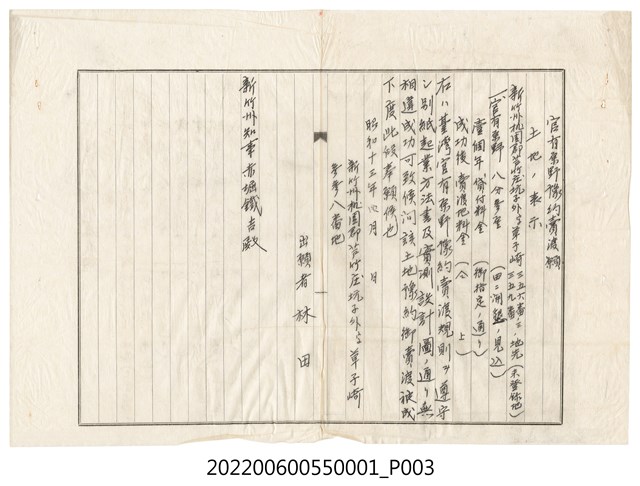 官有原野豫約賣渡願
土地ノ表示
新竹州桃園郡芦竹庄坑子外字草子崎三五六番ニ地先(未登録地)
三五九番
一官有原野 八分 (田ニ開墾ノ見込)
壹個年貸付料金 (御指定ノ通リ)
成功後賣渡地料金 (仝 上)
右ハ臺灣官有原野豫約賣渡規則ヲ遵守
シ別紙起業方法書及實測設計圖ノ通リ無
相違成功可致候間該土地豫約御賣渡被成
下度此段奉願候也
昭和十三年四月 日
新竹州桃園郡芦竹庄坑子外字草子崎
参参八番地
出願者 林 田
新竹州知事赤堀鐵吉殿
202200600550001_P003